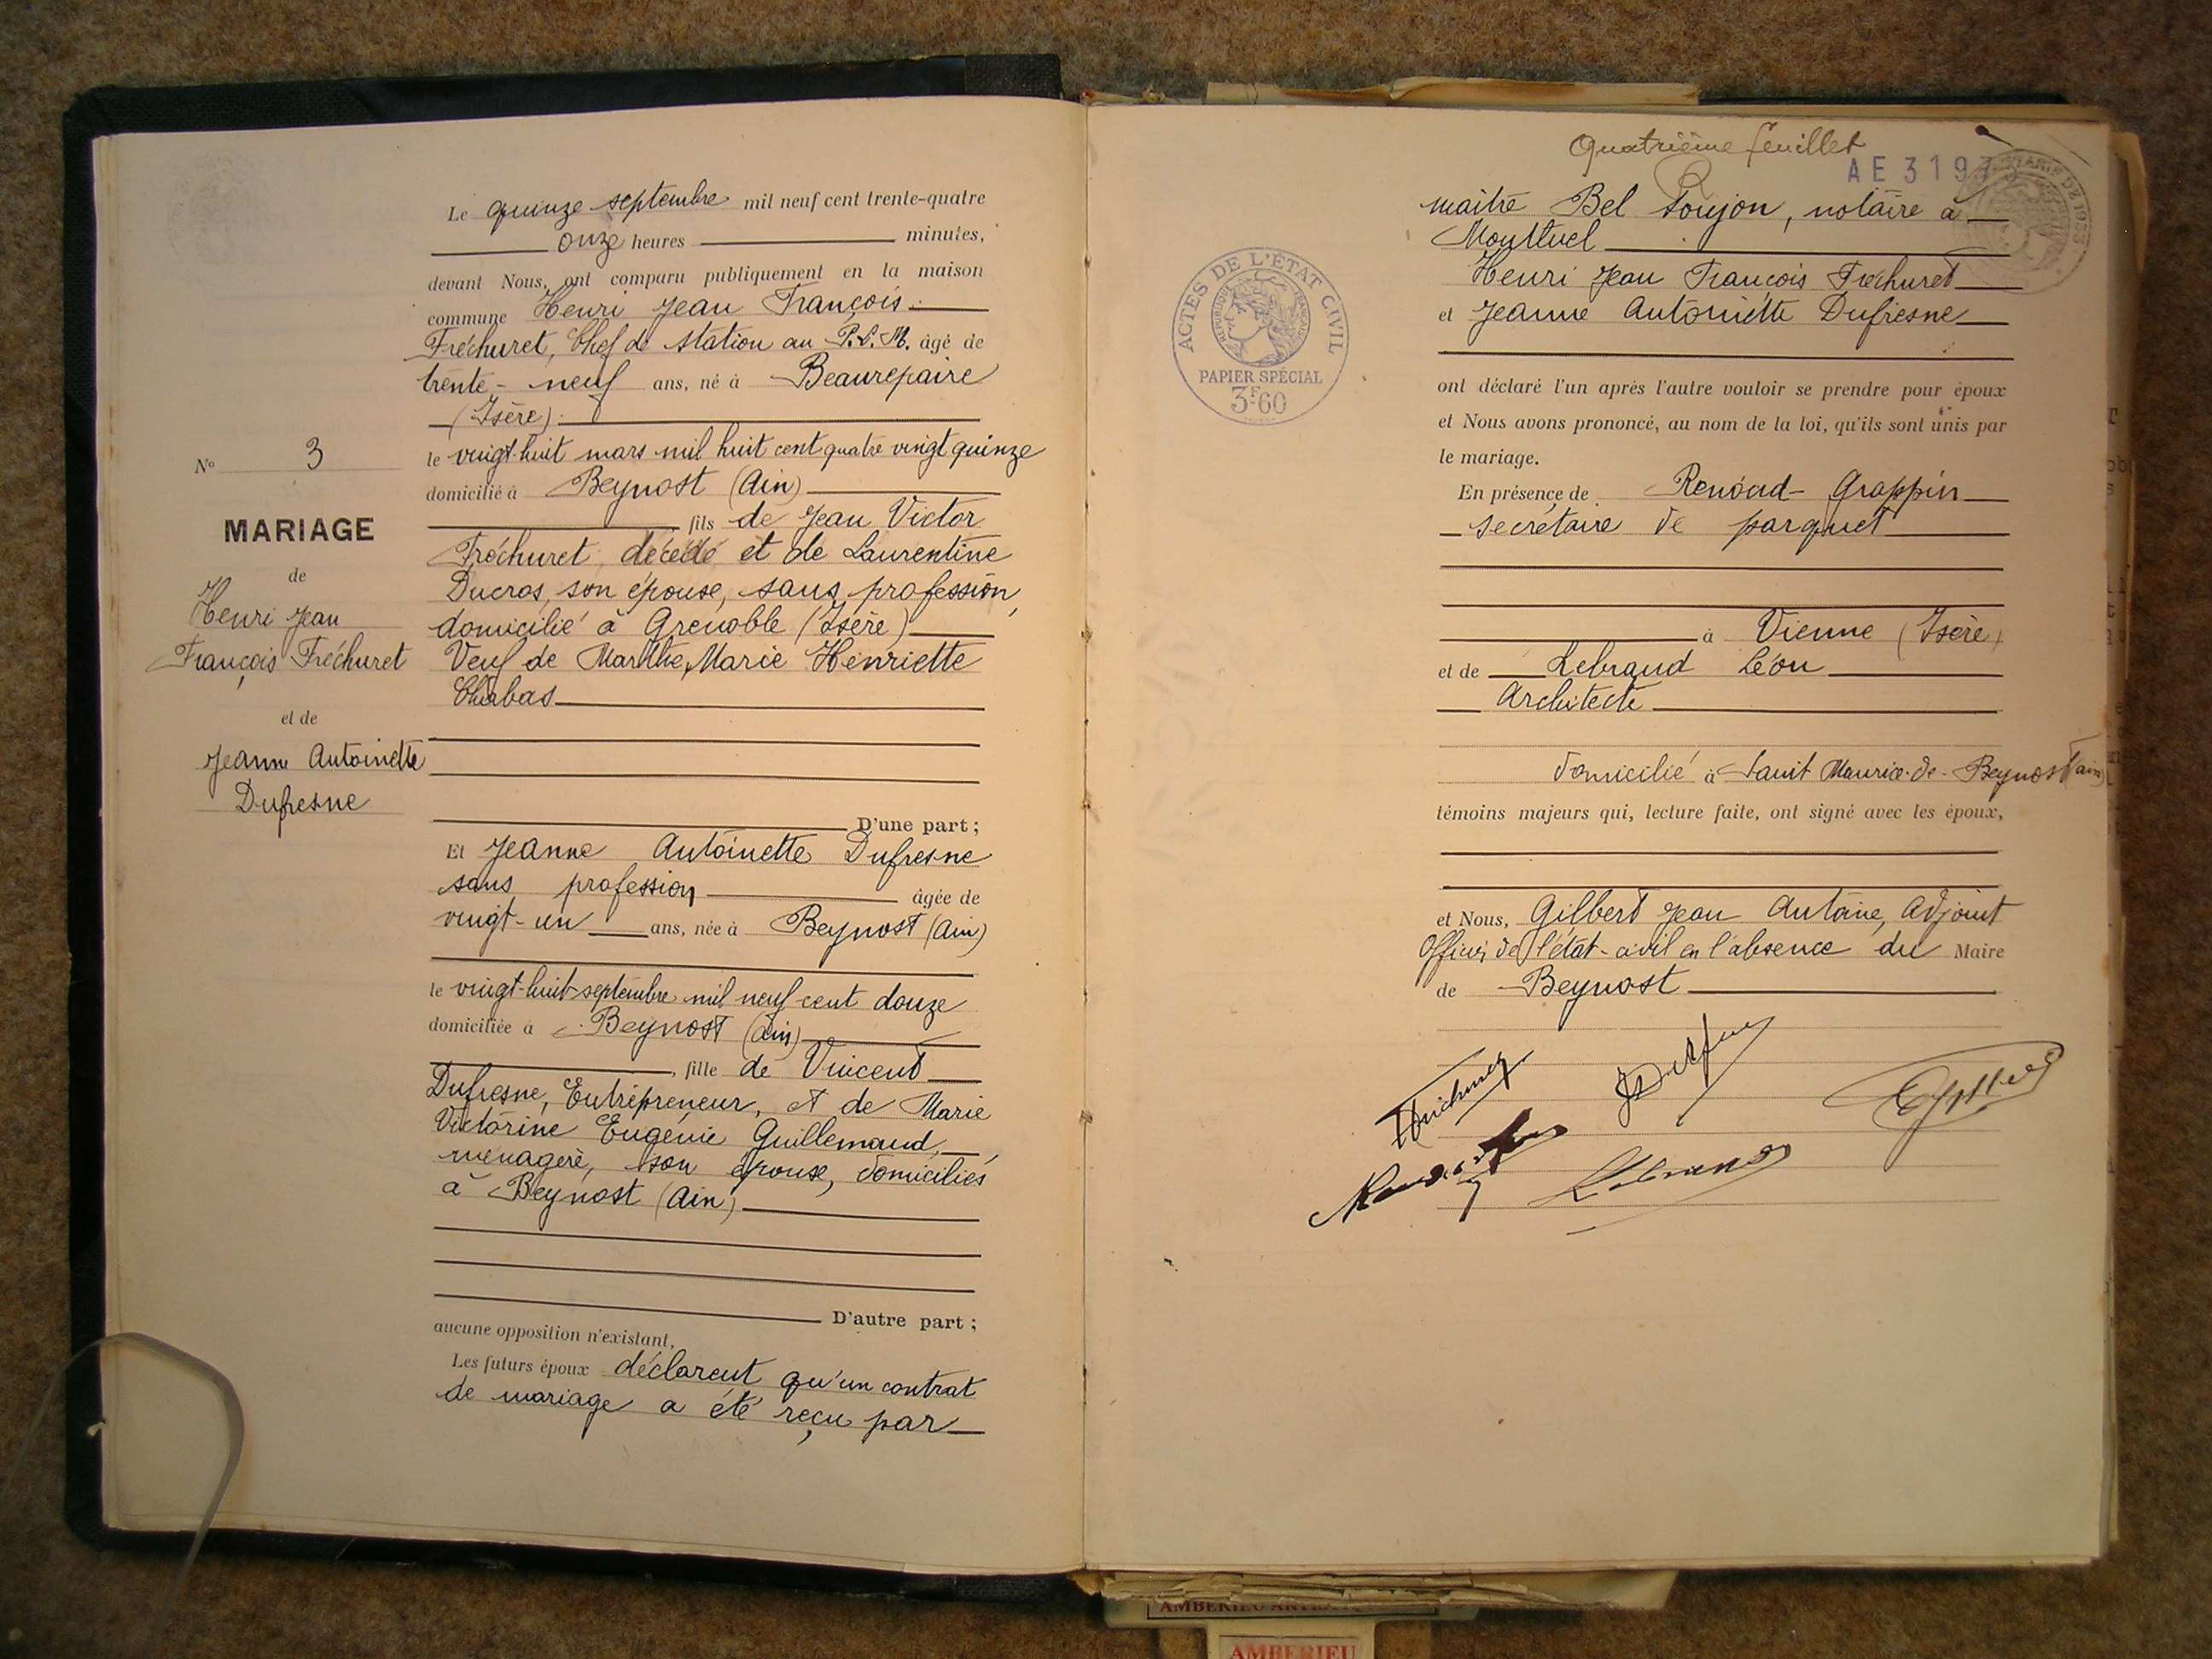 Le quinze septembre mil neuf cent trente-quatre
onze heures minutes,
devant Nous, ont comparu publiquement en la maison
commune Henri Jean François
Fréchuret, Chef de station au P.L.M. âgé de
trente-neuf ans, né à Beaurepaire
(Isère)
le vingt-huit mars mil huit cent quatre vingt quinze
domicilié à Beynost (Ain)
fils de Jean Victor
Fréchuret, décédé et de Laurentine
Ducros, son épouse, sans profession,
domicilié à Grenoble (Isère)
Veuf de Marthe, Marie Henriette
Chabas
D'une part;
Et Jeanne Antoinette Dufresne
sans profession âgée de
vingt-un ans, née à Beynost (Ain)
le vingt-huit-septembre mil neuf cent douze
domiciliée à Beynost (Ain)
, fille de Vincent
Dufresne, Entrepreneur, et de Marie
Victorine Eugénie Guillemaud,
ménagère, son épouse, domiciliés
à Beynost (Ain)
D'autre part;
aucune opposition n'existant,
Les futurs époux déclarent qu'un contrat
de mariage a été reçu par
No 3
MARIAGE
de
Henri Jean
François Fréchuret
et de
Jeanne Antoinette
Dufresne
Quatrième feuillet
AE 3197
maître Bel Soujon, notaire à
Montluel
Henri Jean François Fréchuret
et Jeanne Antoinette Dufresne
ont déclaré l'un après l'autre vouloir se prendre pour époux
et Nous avons prononcé, au nom de la loi, qu'ils sont unis par
le mariage.
En présence de Renoud-Grappin
secrétaire de parquet
à Vienne (Isère)
et de Lebraud Léon
Architecte
domicilié à Saint Maurice-de-Beynost (Ain)
témoins majeurs qui, lecture faite, ont signé avec les époux,
et Nous, Gilbert Jean Antoine, Adjoint
Officier de l'état-civil en l'absence du Maire
de Beynost
ACTES DE L'ÉTAT CIVIL
RÉPUBLIQUE FRANÇAISE
PAPIER SPÉCIAL
3F60
AMBERIEU
AMBERIEU